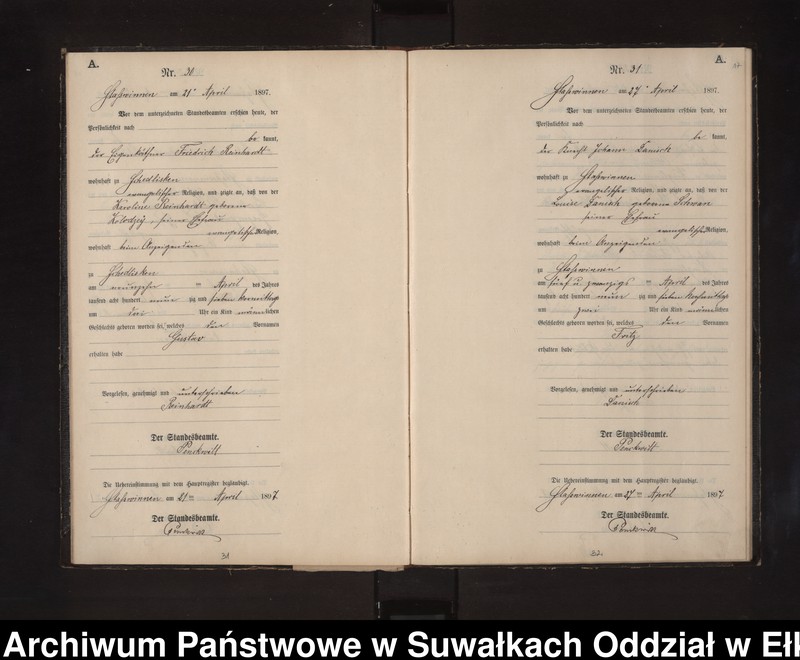 A.
Nr. 30
am 21ᵗ April 1897.
Vor dem unterzeichneten Standesbeamten erschien heute, der
Persönlichkeit nach
be kannt,
der Eigenkäthner Friedrich Reinhardt
wohnhaft zu Schedlisken
evangelischer Religion, und zeigte an, daß von der
Karoline Reinhardt geborenen
seiner Ehefrau
evangelischer Religion,
wohnhaft beim Anzeigenden
zu Schedlisken
am neunzehn ten April des Jahres
tausend acht hundert neun zig und sieben Vormittags
um drei Uhr ein Kind männlichen
Geschlechts geboren worden sei, welches den Vornamen
Gustav
erhalten habe
Vorgelesen, genehmigt und unterschrieben
Reinhardt
Der Standesbeamte.
Die Uebereinstimmung mit dem Hauptregister beglaubigt.
am 21ten April 1897.
Der Standesbeamte.
31
A.
Nr. 31
am 27ᵗ April 1897.
Vor dem unterzeichneten Standesbeamten erschien heute, der
Persönlichkeit nach
be kannt,
der Knecht Johann
wohnhaft zu
evangelischer Religion, und zeigte an, daß von der
Louise geborene
seiner Ehefrau
evangelischer Religion,
wohnhaft beim Anzeigenden
zu
am fünf u. zwanzigs ten April des Jahres
tausend acht hundert neun zig und sieben
um zwei Uhr ein Kind männlichen
Geschlechts geboren worden sei, welches den Vornamen
Fritz
erhalten habe
Vorgelesen, genehmigt und unterschrieben
Der Standesbeamte.
Die Uebereinstimmung mit dem Hauptregister beglaubigt.
am 27ten April 1897.
Der Standesbeamte.
32.
Archiwum Państwowe w Suwałkach Oddział w Ełk